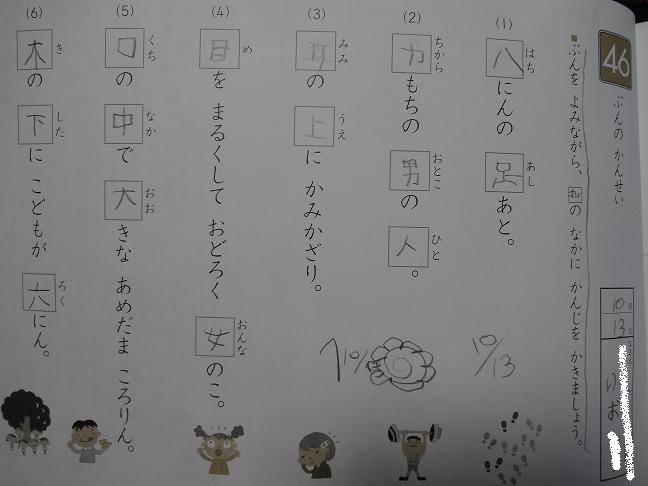 46
ぶんの かんせい
10月
13日
■ぶんを よみながら、□の なかに かんじを かきましょう。
(1) 八にんの 足あと。
はち あし
(2) 力もちの 男の 人。
ちから おとこ ひと
(3) 耳の 上に かみかざり。
みみ うえ
(4) 目を まるくして おどろく 女のこ。
め おんな
(5) 口の 中で 大きな あめだま ころりん。
くち なか おお
(6) 木の 下に こどもが 六にん。
き した ろく
10/13